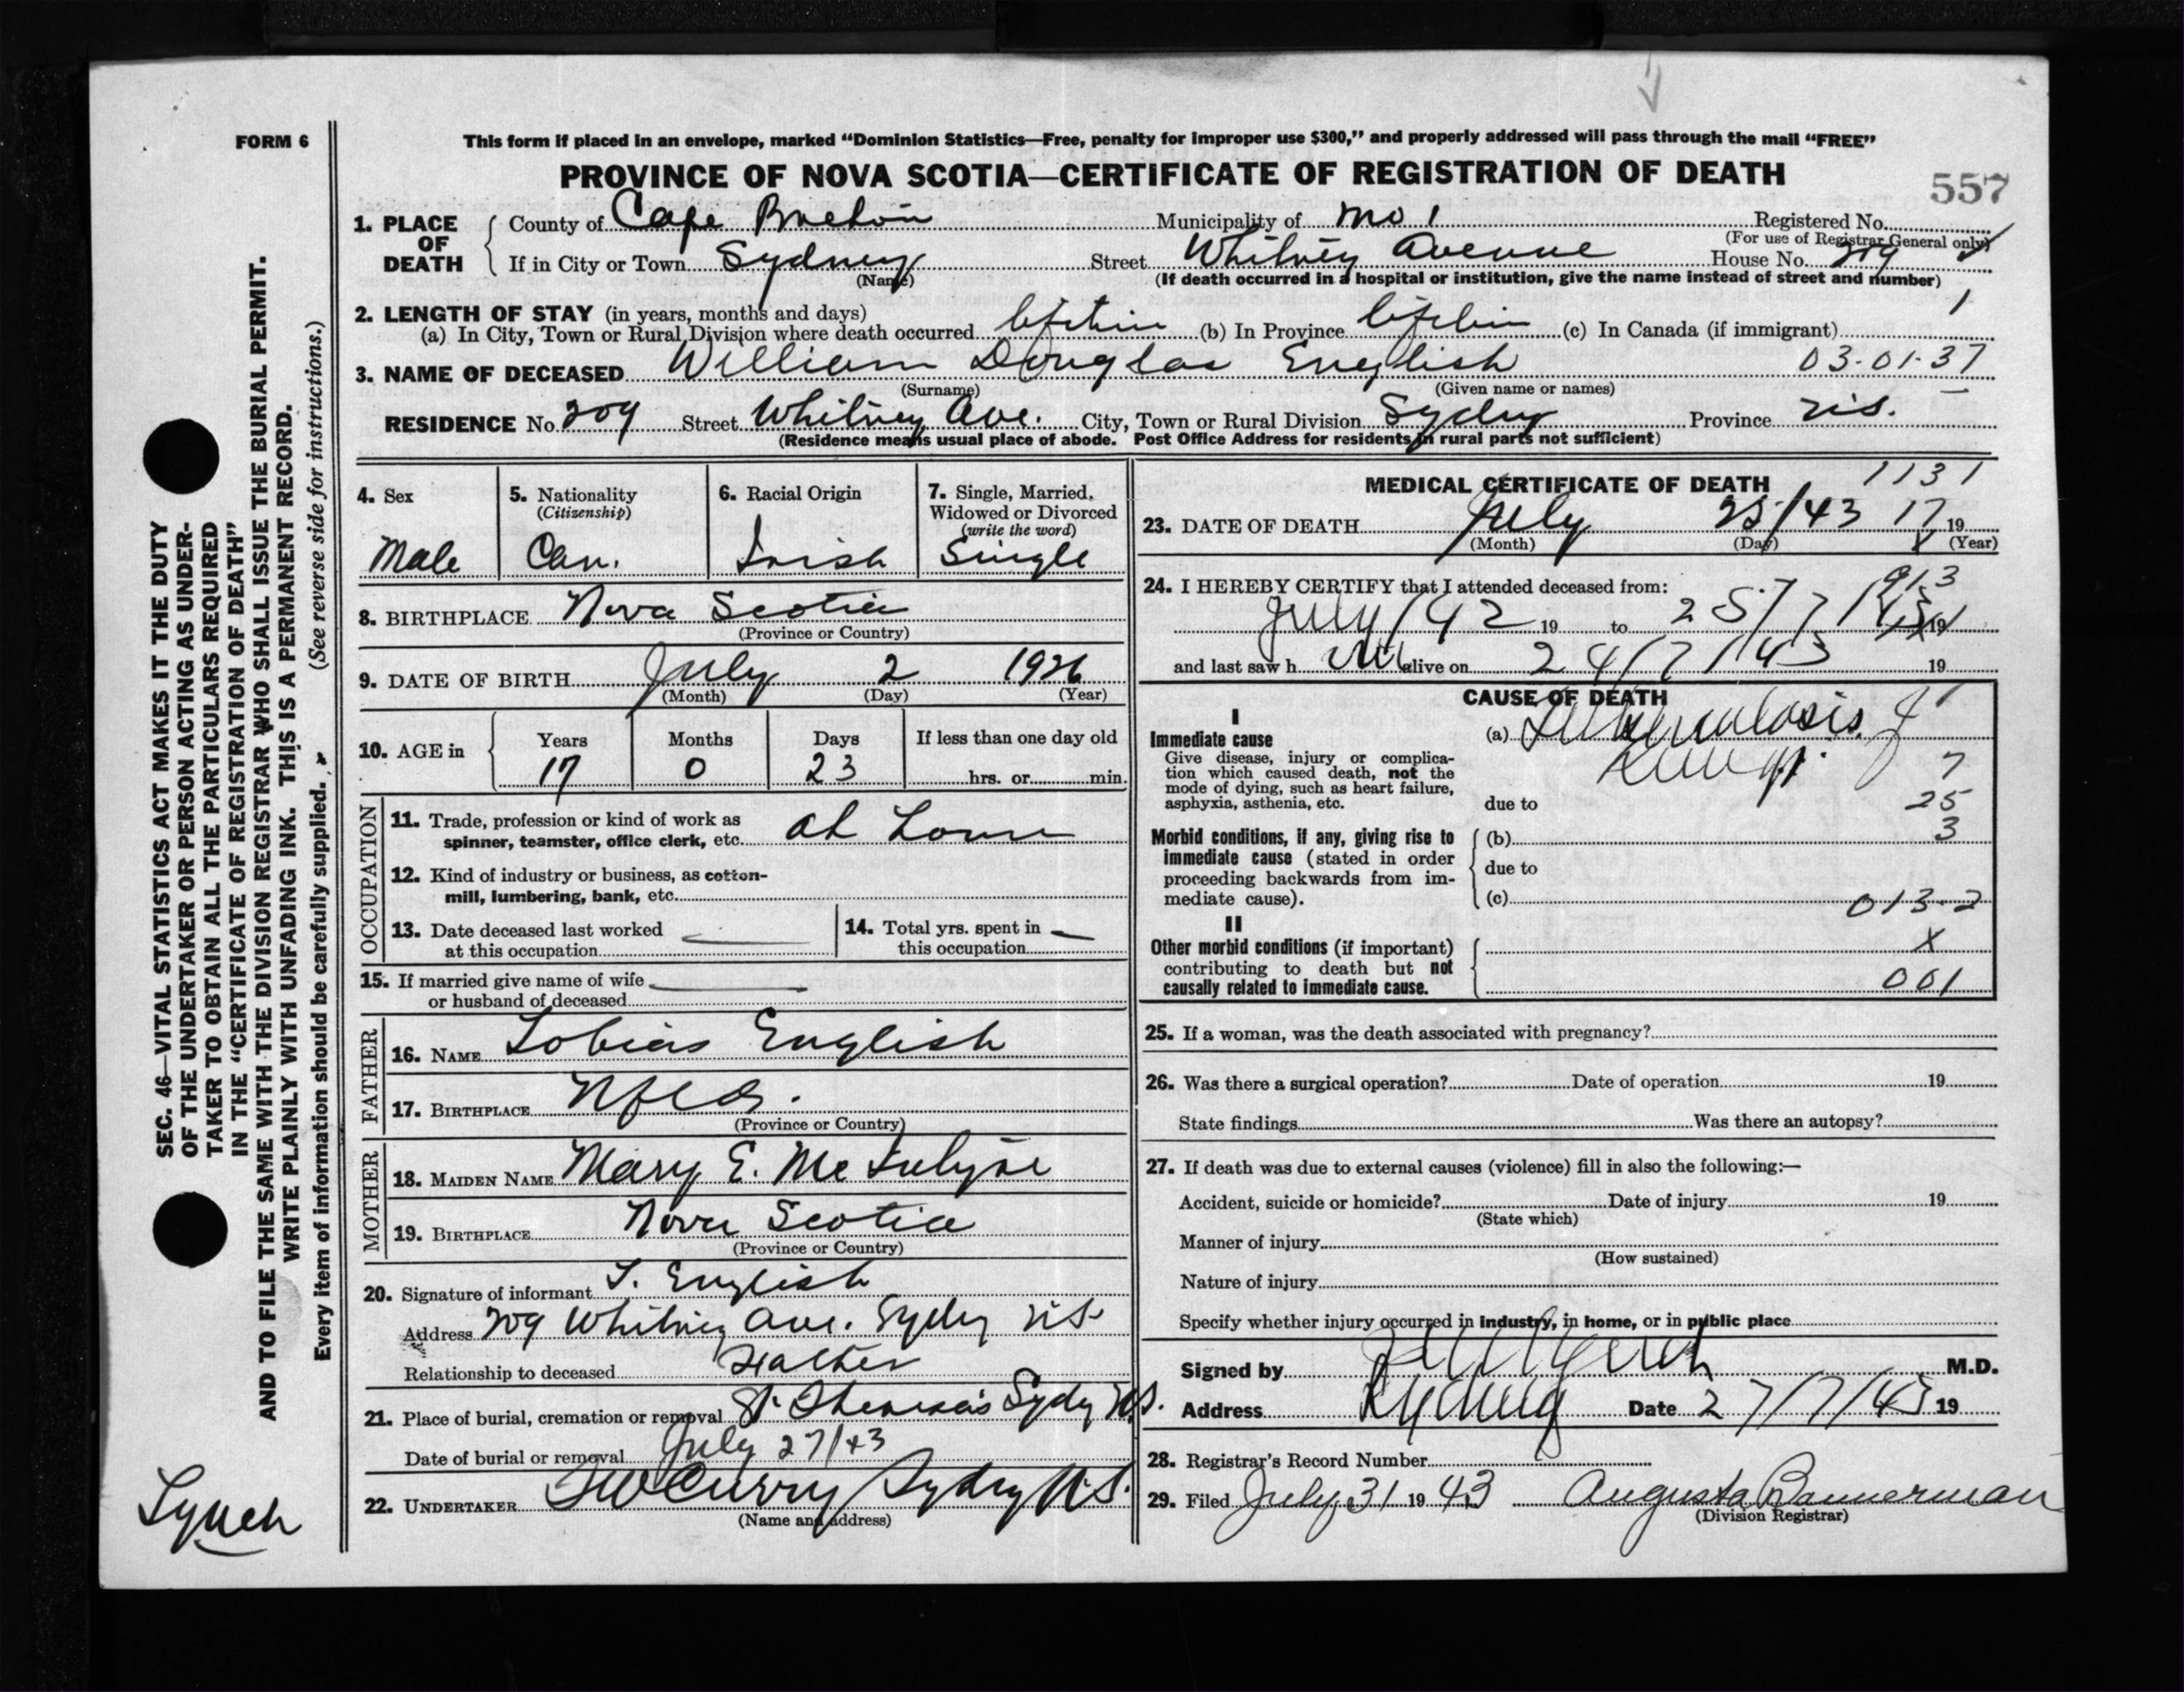 FORM 6
This form if placed in an envelope, marked “Dominion Statistics—Free, penalty for improper use $300,” and properly addressed will pass through the mail “FREE”
PROVINCE OF NOVA SCOTIA—CERTIFICATE OF REGISTRATION OF DEATH
557
1. PLACE OF DEATH County of Cape Breton Municipality of No 1 Registered No.
(For use of Registrar General only)
If in City or Town Sydney Street Whitney Avenue House No. 209
(Name) (If death occurred in a hospital or institution, give the name instead of street and number)
2. LENGTH OF STAY (in years, months and days) 1
(a) In City, Town or Rural Division where death occurred lifetime (b) In Province lifetime (c) In Canada (if immigrant)
3. NAME OF DECEASED William Douglas English 03-01-37
(Surname) (Given name or names)
RESIDENCE No. 209 Street Whitney Ave. City, Town or Rural Division Sydney Province N.S.
(Residence means usual place of abode. Post Office Address for residents in rural parts not sufficient)
4. Sex Male
5. Nationality (Citizenship) Can.
6. Racial Origin Irish
7. Single, Married, Widowed or Divorced (write the word) Single
8. BIRTHPLACE Nova Scotia
(Province or Country)
9. DATE OF BIRTH July 2 1926
(Month) (Day) (Year)
10. AGE in Years Months Days If less than one day old
17 0 23 hrs. or min.
OCCUPATION
11. Trade, profession or kind of work as
spinner, teamster, office clerk, etc. at home
12. Kind of industry or business, as cotton-
mill, lumbering, bank, etc.
13. Date deceased last worked
at this occupation
14. Total yrs. spent in
this occupation
15. If married give name of wife
or husband of deceased
FATHER
16. NAME Tobias English
17. BIRTHPLACE Nfld.
(Province or Country)
MOTHER
18. MAIDEN NAME Mary E. McIntyre
19. BIRTHPLACE Nova Scotia
(Province or Country)
20. Signature of informant T. English
Address 209 Whitney Ave. Sydney N.S.
Relationship to deceased Father
21. Place of burial, cremation or removal St. Theresa's Sydney N.S.
Date of burial or removal July 27/43
22. UNDERTAKER TW Curry Sydney N.S.
(Name and address)
MEDICAL CERTIFICATE OF DEATH 1131
23. DATE OF DEATH July 25/43 17 19
(Month) (Day) X (Year)
24. I HEREBY CERTIFY that I attended deceased from: 913
July/42 19 to 25/7/43 19
and last saw h im alive on 24/7/43 19
CAUSE OF DEATH
I
Immediate cause (a) Tuberculosis
Lungs
Give disease, injury or complica-
tion which caused death, not the
mode of dying, such as heart failure,
asphyxia, asthenia, etc. due to
7
25
3
Morbid conditions, if any, giving rise to (b)
immediate cause (stated in order due to
proceeding backwards from im-
mediate cause). (c) 013-2
II
Other morbid conditions (if important) X
contributing to death but not
causally related to immediate cause. 001
25. If a woman, was the death associated with pregnancy?
26. Was there a surgical operation? Date of operation 19
State findings Was there an autopsy?
27. If death was due to external causes (violence) fill in also the following:—
Accident, suicide or homicide? Date of injury 19
(State which)
Manner of injury
(How sustained)
Nature of injury
Specify whether injury occurred in industry, in home, or in public place
Signed by Lynch M.D.
Address Sydney Date 27/7/43 19
28. Registrar's Record Number
29. Filed July 31 19 43 Augusta Bannerman
(Division Registrar)
SEC. 46—VITAL STATISTICS ACT MAKES IT THE DUTY
OF THE UNDERTAKER OR PERSON ACTING AS UNDER-
TAKER TO OBTAIN ALL THE PARTICULARS REQUIRED
IN THE “CERTIFICATE OF REGISTRATION OF DEATH”
AND TO FILE THE SAME WITH THE DIVISION REGISTRAR WHO SHALL ISSUE THE BURIAL PERMIT.
WRITE PLAINLY WITH UNFADING INK. THIS IS A PERMANENT RECORD.
Every item of information should be carefully supplied. (See reverse side for instructions.)
Lynch